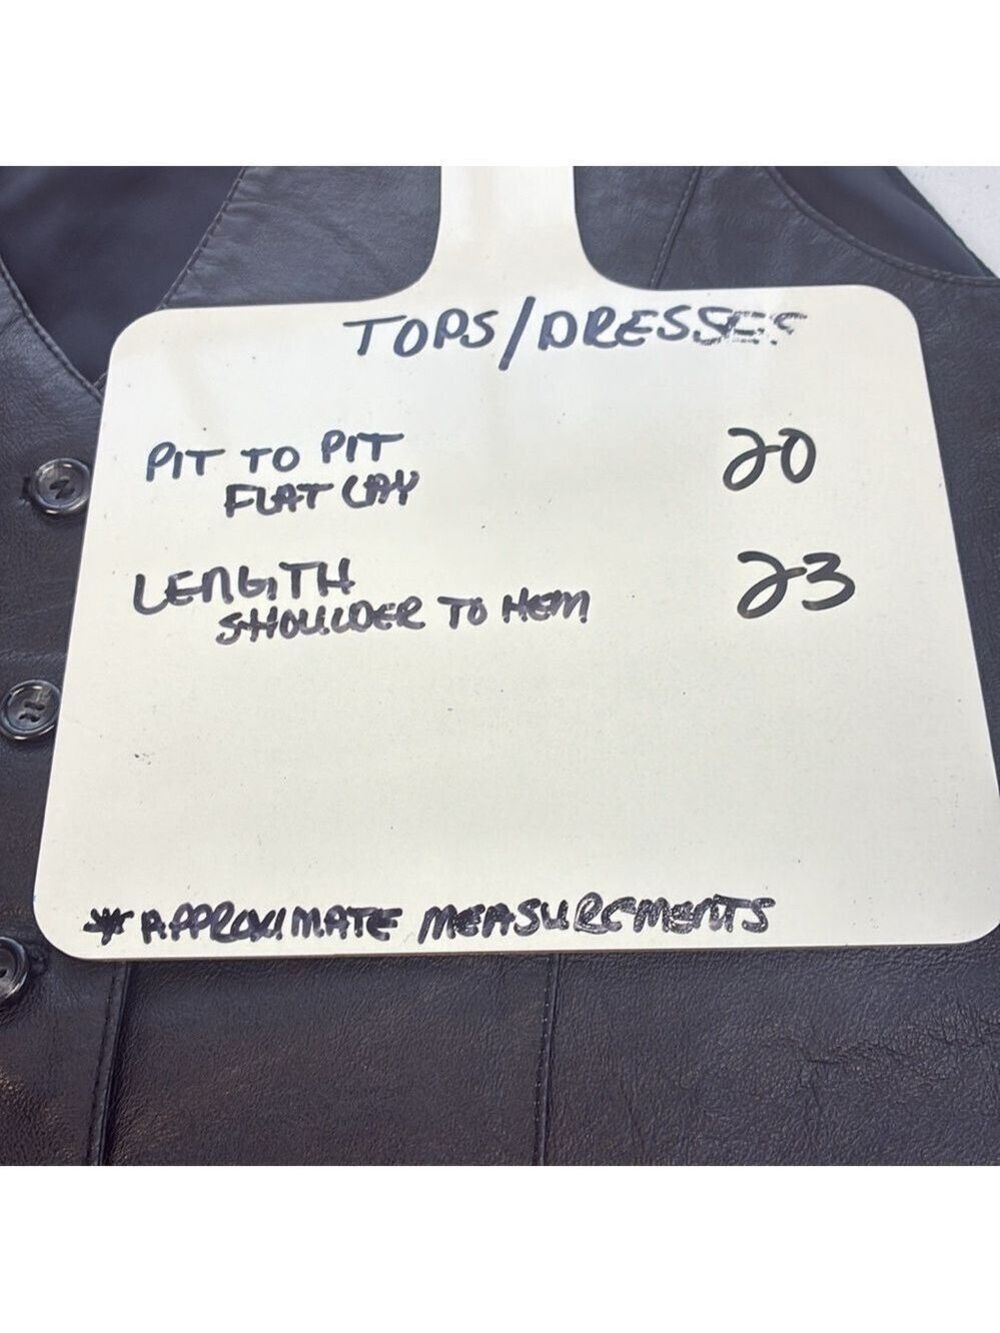 TOPS/DRESSES
PIT TO PIT 20
FLAT LAY
LENGTH 23
SHOULDER TO HEM
*APPROXIMATE MEASUREMENTS